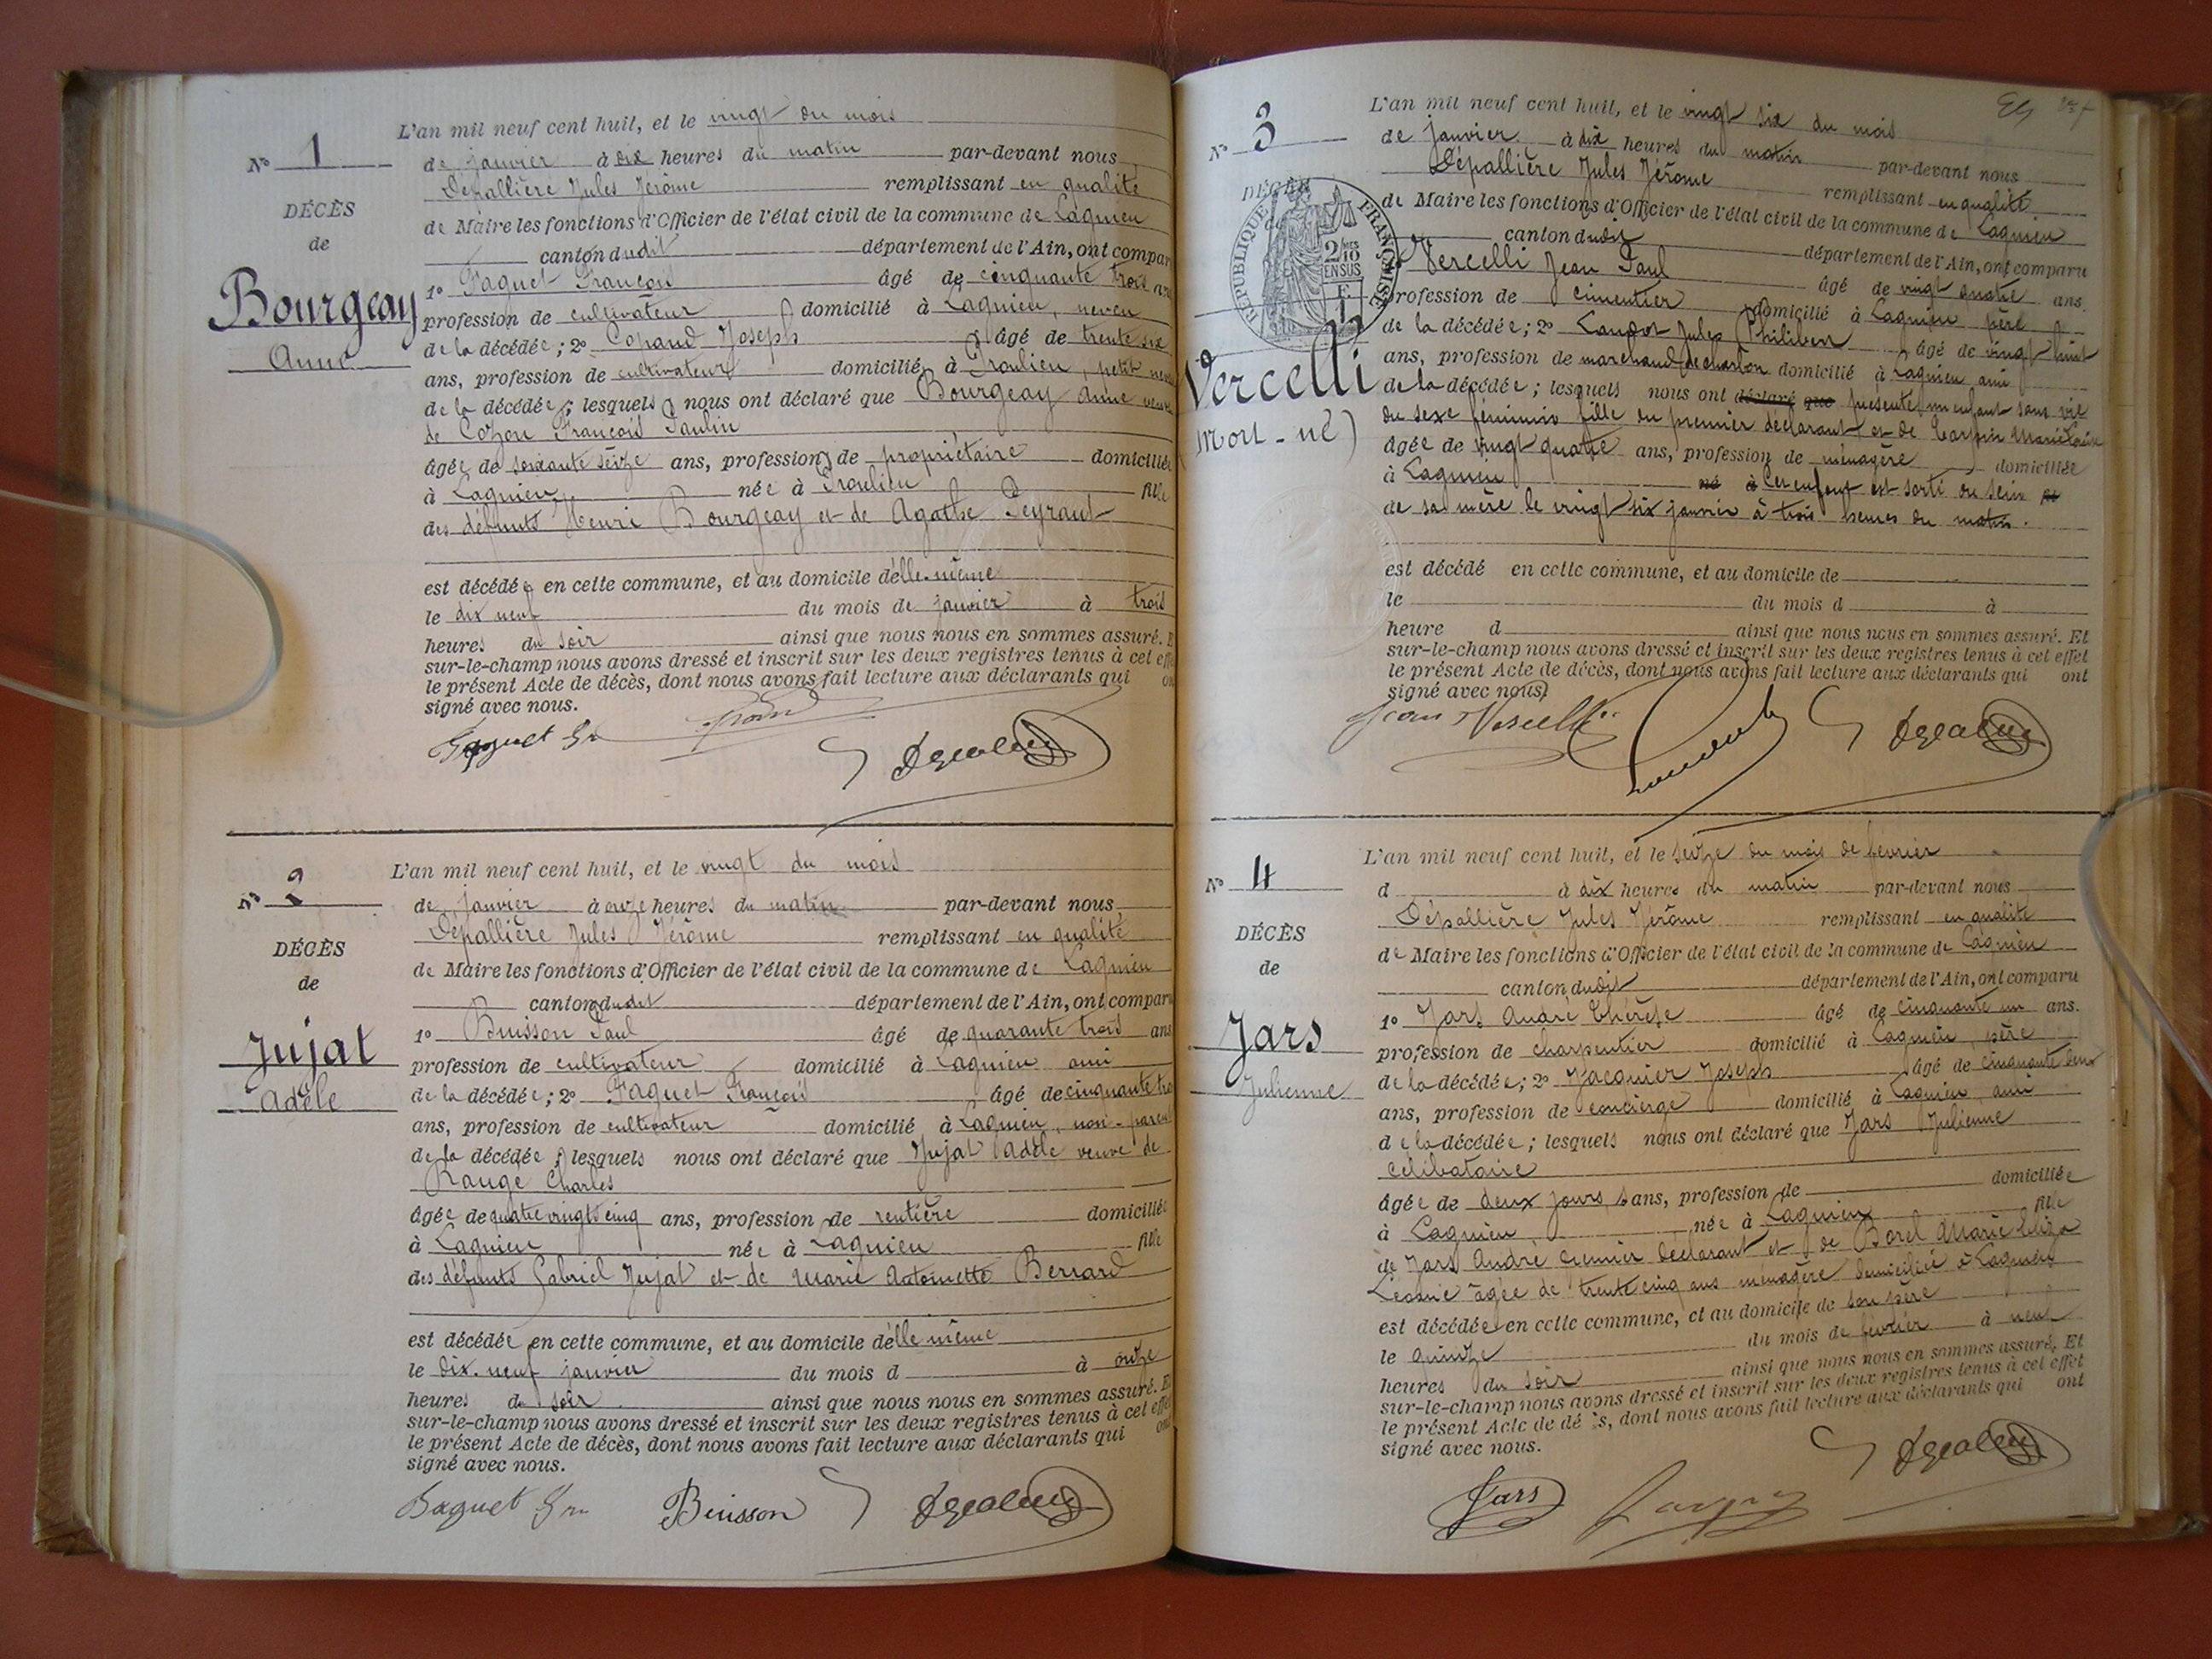 L'an mil neuf cent huit, et le vingt du mois
N° 1
de janvier à dix heures du matin par-devant nous
Dépallière Jules Jérôme remplissant en qualité
DÉCÈS
de Maire les fonctions d'Officier de l'état civil de la commune de Lagnieu
de
canton dudit département de l'Ain, ont compar
Bourgeay
Anne
1° Paquet François âgé de cinquante trois ans
profession de cultivateur domicilié à Lagnieu, neveu
de la décédée; 2° Copand Joseph âgé de trente six
ans, profession de cultivateur domicilié à Proulieu, petit neveu
de la décédée; lesquels nous ont déclaré que Bourgeay Anne veuve
de Cozon François Paulin
âgée de soixante seize ans, profession de propriétaire domiciliée
à Lagnieu née à Proulieu fille
des défunts Henri Bourgeay et de Agathe Peyraut
est décédée en cette commune, et au domicile d'elle-même
le dix neuf du mois de janvier à trois
heures du soir ainsi que nous nous en sommes assuré. E
sur-le-champ nous avons dressé et inscrit sur les deux registres tenus à cet effe
le présent Acte de décès, dont nous avons fait lecture aux déclarants qui on
signé avec nous.
L'an mil neuf cent huit, et le vingt du mois
N° 2
de janvier à onze heures du matin par-devant nous
Dépallière Jules Jérôme remplissant en qualité
DÉCÈS
de Maire les fonctions d'Officier de l'état civil de la commune de Lagnieu
de
canton dudit département de l'Ain, ont comparu
Jujat
Adèle
1° Buisson Paul âgé de quarante trois ans
profession de cultivateur domicilié à Lagnieu ami
de la décédée; 2° Paquet François âgé de cinquante tro
ans, profession de cultivateur domicilié à Lagnieu, non-paren
de la décédée; lesquels nous ont déclaré que Jujat Adèle veuve de
Rauge Charles
âgée de quatre vingt cinq ans, profession de rentière domiciliée
à Lagnieu née à Lagnieu fille
des défunts Gabriel Jujat et de Marie Antoinette Bernard
est décédée en cette commune, et au domicile d'elle même
le dix-neuf janvier du mois d à onze
heures du soir ainsi que nous nous en sommes assuré. E
sur-le-champ nous avons dressé et inscrit sur les deux registres tenus à cet effe
le présent Acte de décès, dont nous avons fait lecture aux déclarants qui on
signé avec nous.
Buisson
L'an mil neuf cent huit, et le vingt six du mois
N° 3
de janvier à dix heures du matin par-devant nous
Dépallière Jules Jérôme remplissant en qualité
DÉCÈS
de
RÉPUBLIQUE FRANÇAISE
2/10 EN SUS
de Maire les fonctions d'Officier de l'état civil de la commune de Lagnieu
canton dudit département de l'Ain, ont comparu
Vercelli
(Mort-né)
1° Vercelli Jean Paul âgé de vingt quatre ans
profession de cimentier domicilié à Lagnieu père
de la décédée; 2° Jules Philibert âgé de vingt huit
ans, profession de marchand de charbon domicilié à Lagnieu ami
de la décédée; lesquels nous ont déclaré que présenté un enfant sans vie
du sexe féminin fille du premier déclarant et de Marie
âgée de vingt quatre ans, profession de ménagère domiciliée
à Lagnieu né à Cet enfant est sorti du sein
de sa mère le vingt-six janvier à trois heures du matin.
est décédé en cette commune, et au domicile de
le du mois d à
heure d ainsi que nous nous en sommes assuré. Et
sur-le-champ nous avons dressé et inscrit sur les deux registres tenus à cet effet
le présent Acte de décès, dont nous avons fait lecture aux déclarants qui ont
signé avec nous
L'an mil neuf cent huit, et le seize du mois de février
N° 4
d à dix heures du matin par-devant nous
Dépallière Jules Jérôme remplissant en qualité
DÉCÈS
de Maire les fonctions d'Officier de l'état civil de la commune de Lagnieu
de
canton dudit département de l'Ain, ont comparu
Jars
Julienne
1° Jars André Thérèse âgé de cinquante un ans.
profession de charpentier domicilié à Lagnieu, père
de la décédée; 2° Jacquier Joseph âgé de cinquante deux
ans, profession de concierge domicilié à Lagnieu, ami
de la décédée; lesquels nous ont déclaré que Jars Julienne
célibataire
âgée de deux jours sans, profession de domiciliée
à Lagnieu née à Lagnieu fille
de Jars André premier déclarant et de Borel Marie Eliza
Léonie âgée de trente cinq ans ménagère domiciliée à Lagnieu
est décédée en cette commune, et au domicile de son père
le quinze du mois de février à neuf
heures du soir ainsi que nous nous en sommes assuré. Et
sur-le-champ nous avons dressé et inscrit sur les deux registres tenus à cet effet
le présent Acte de dé s, dont nous avons fait lecture aux déclarants qui ont
signé avec nous.
Jars